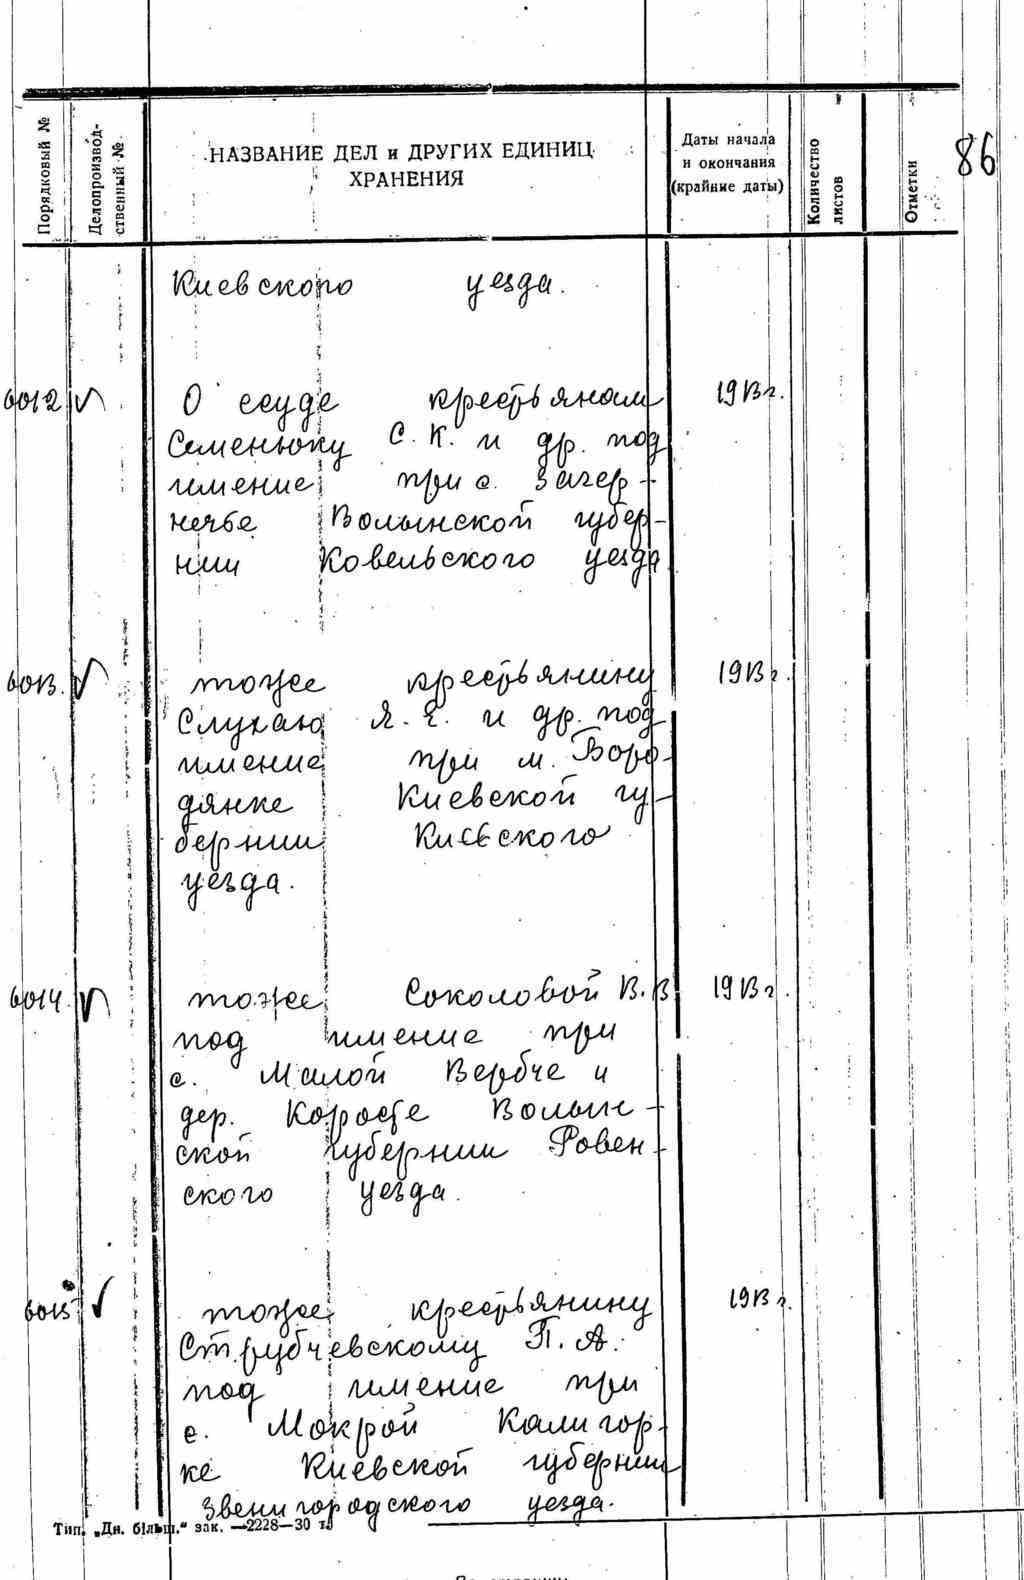 86
Порядковый №
Делопроизвод-
ственный №
НАЗВАНИЕ ДЕЛ и ДРУГИХ ЕДИНИЦ
ХРАНЕНИЯ
Даты начала
и окончания
(крайние даты)
Количество
листов
Отметки
Киевского уезда.
6012 О ссуде крестьянам 1913 г.
Семенюку С. К. и др. под
имение при с. Зачер-
нечье Волынской губер-
нии Ковельского уезда
6013. тоже крестьянину 1913 г.
Слухаю Я. Е. и др. под
имение при м. Боро-
дянке Киевской гу-
бернии Киевского
уезда.
6014. тоже Соколовой В. В 1913 г.
под имение при
с. Малой Вербче и
дер. Коросте Волын-
ской губернии Ровен-
ского уезда.
6015 тоже крестьянину 1913 г.
Струбчевскому П. А.
под имение при
с. Мокрой Калигор-
ке Киевской губернии
Звенигородского уезда.
Тип. „Дн. більш." зак. —2228—30 т.